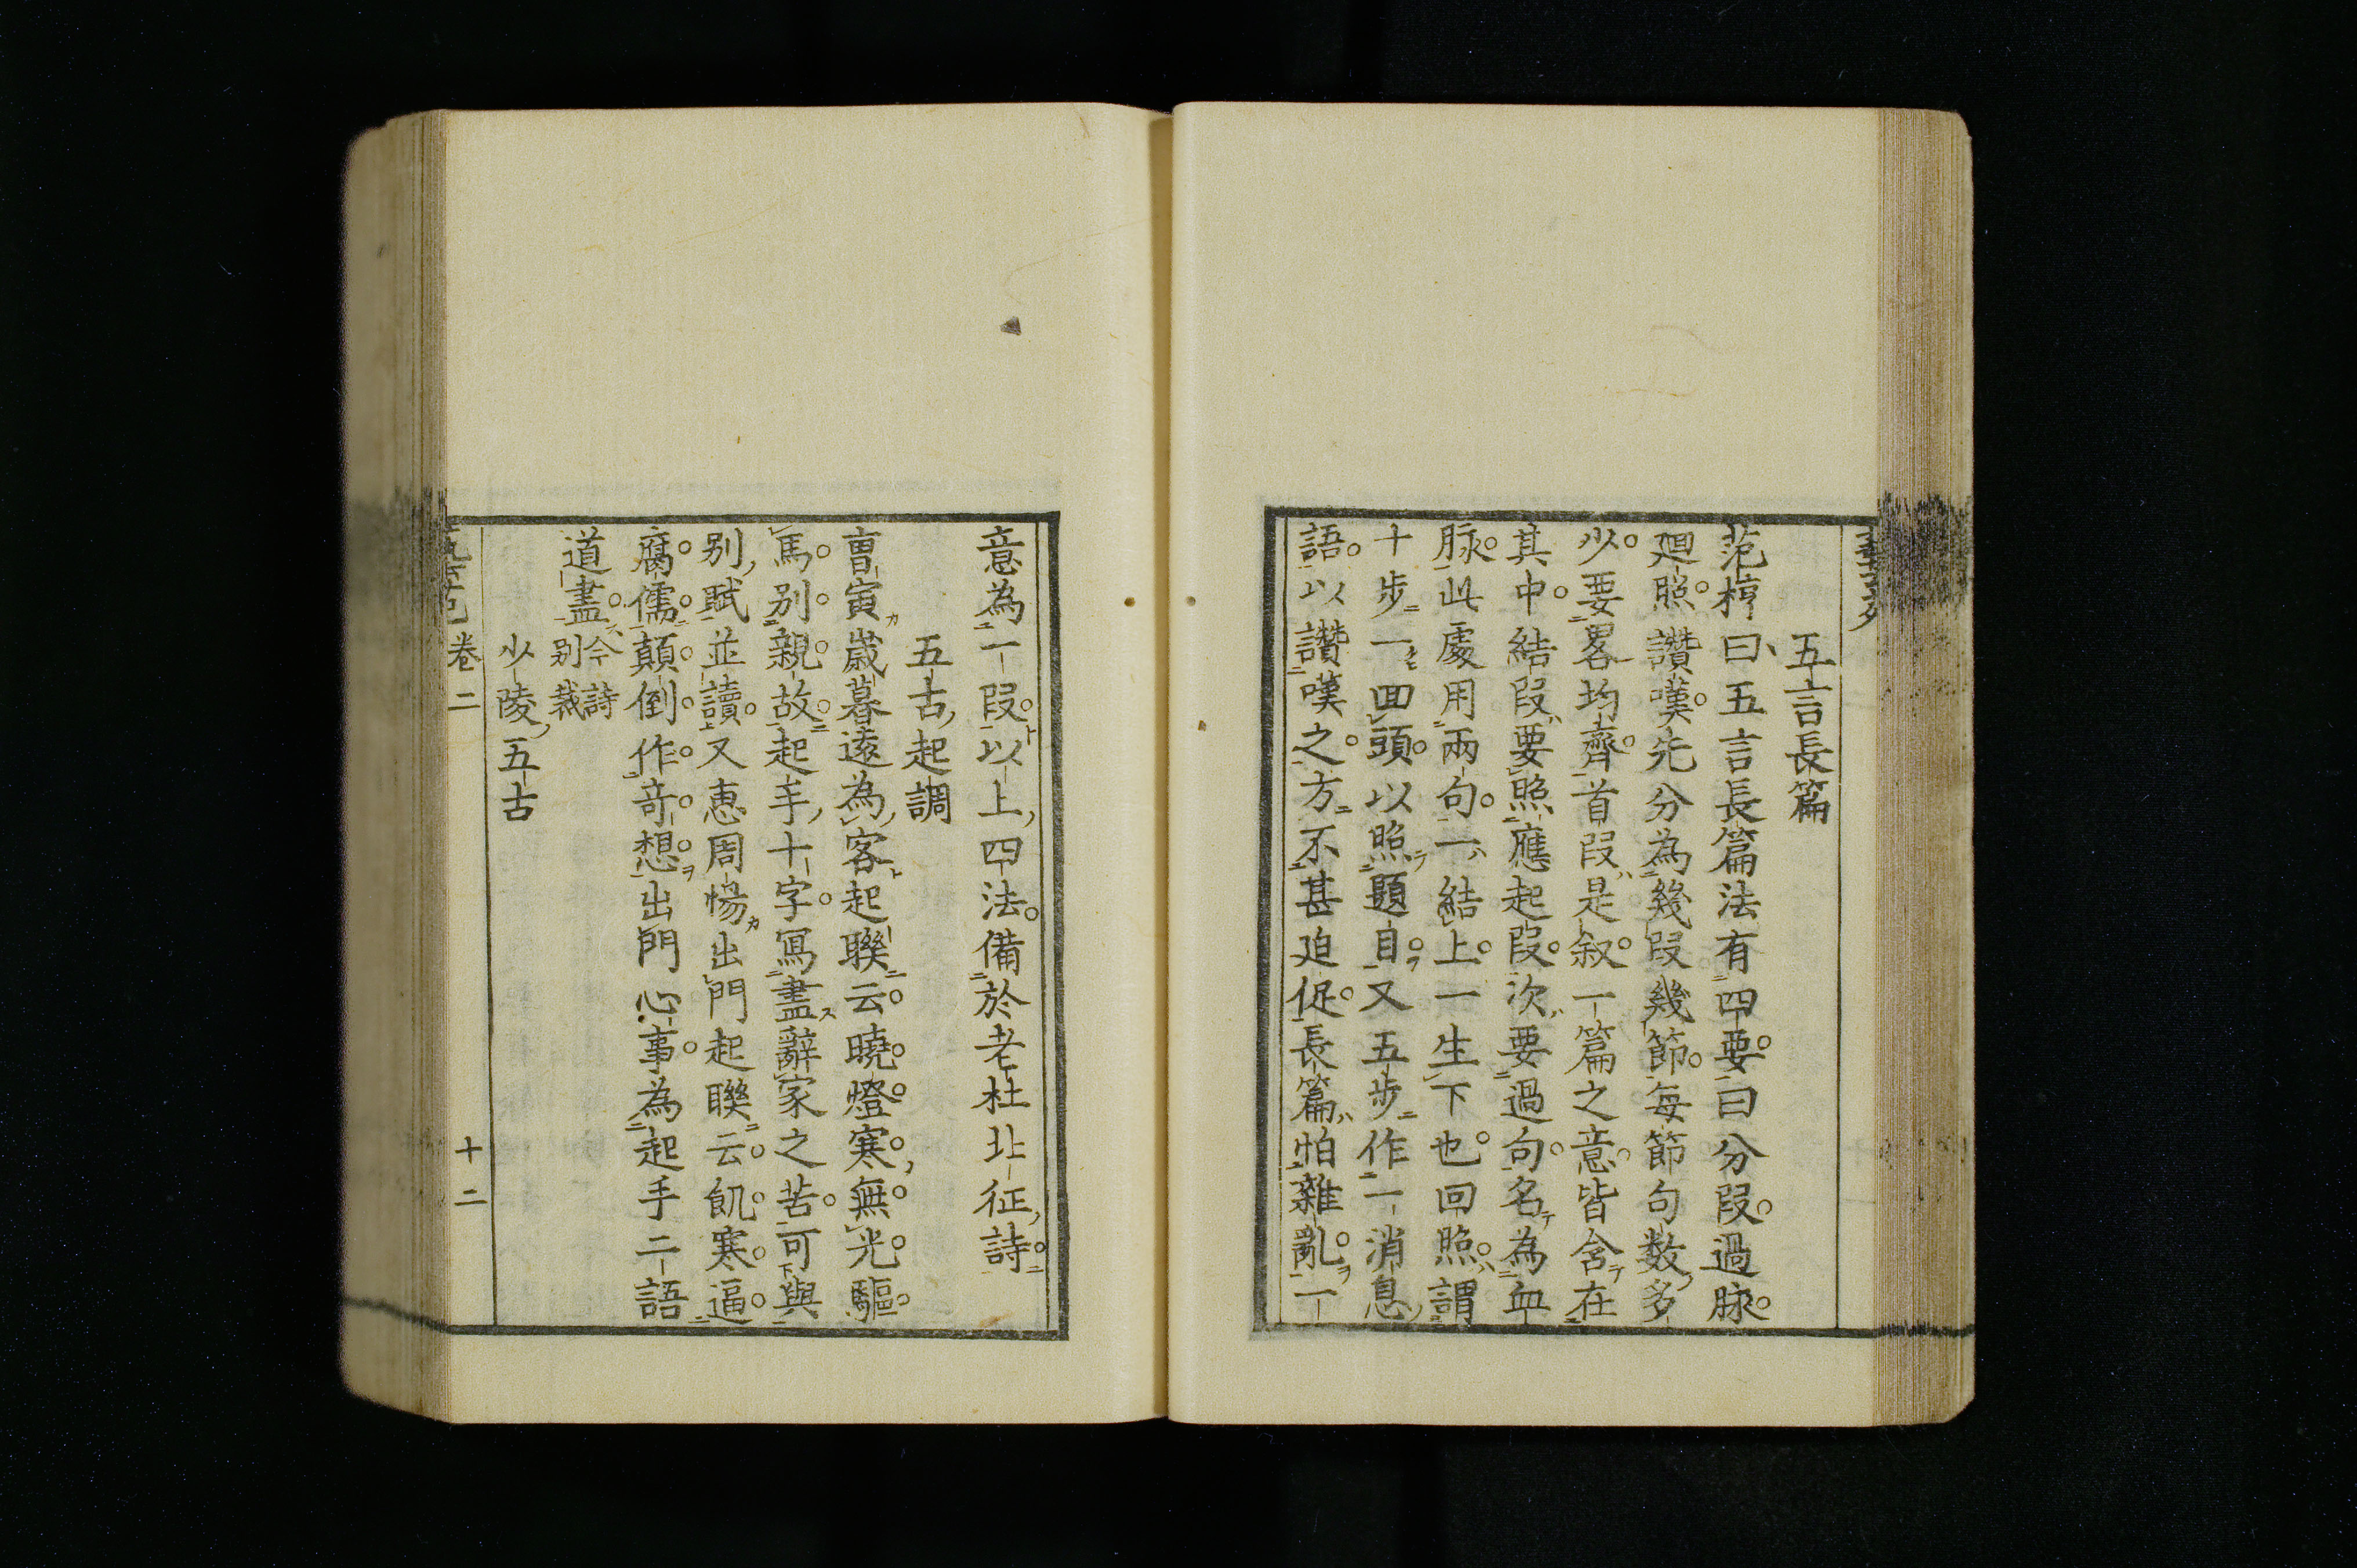 五言長篇
范梈曰五言長篇法有四要曰分段過脉
廻照讚嘆先分為幾段幾節每節句数多
少要畧均齊首段是叙一篇之意皆含在
其中結段要照應起段次要過句名為血
脉此處用兩句一結上一生下也回照謂
十步一回頭以照題目又五步作一消息
語以讚嘆之方不甚迫促長篇怕雜亂一
意為一段以上四法備於老杜北征詩
五古起調
曺寅歲暮遠為客起聯云曉燈寒無光驅
馬別親故起手十字寫盡辭家之苦可與
別賦並讀又惠周惕出門起聯云飢寒逼
腐儒顛倒作竒想出門心事為起手二語
道盡今詩別裁
少陵五古
卷二 十二